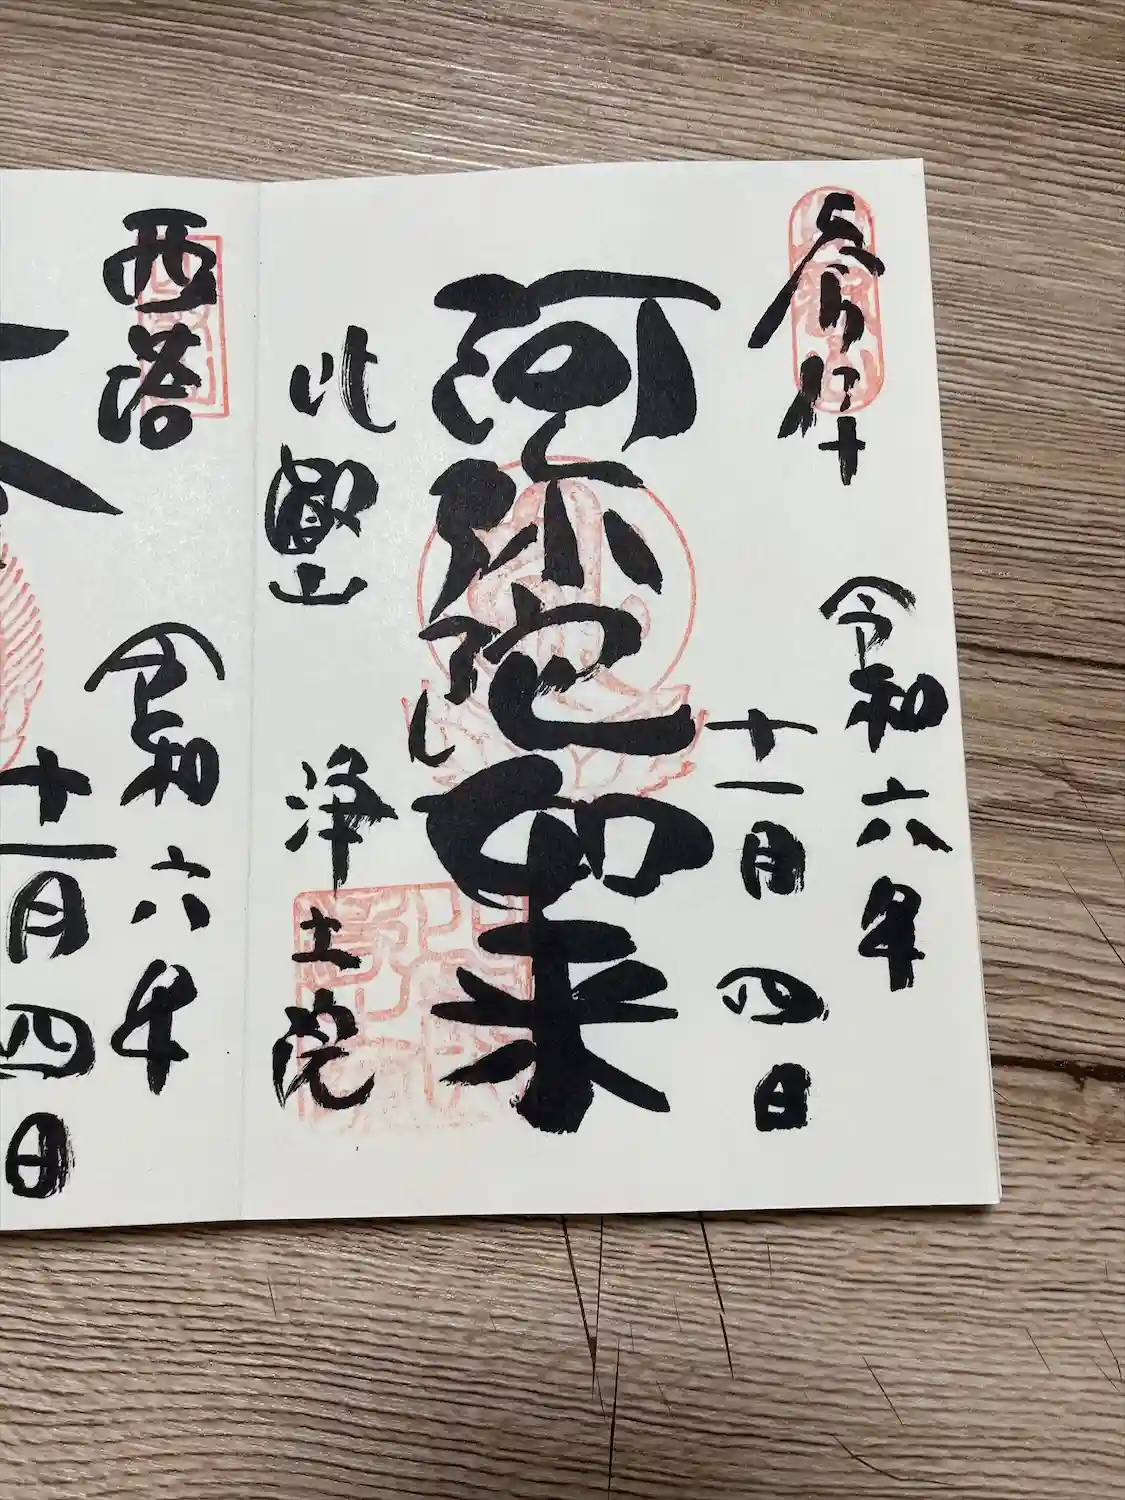 奉拝
令和六年
十一月四日
阿弥陀如来
比叡山
浄土院
西塔
令和六年
十一月四日